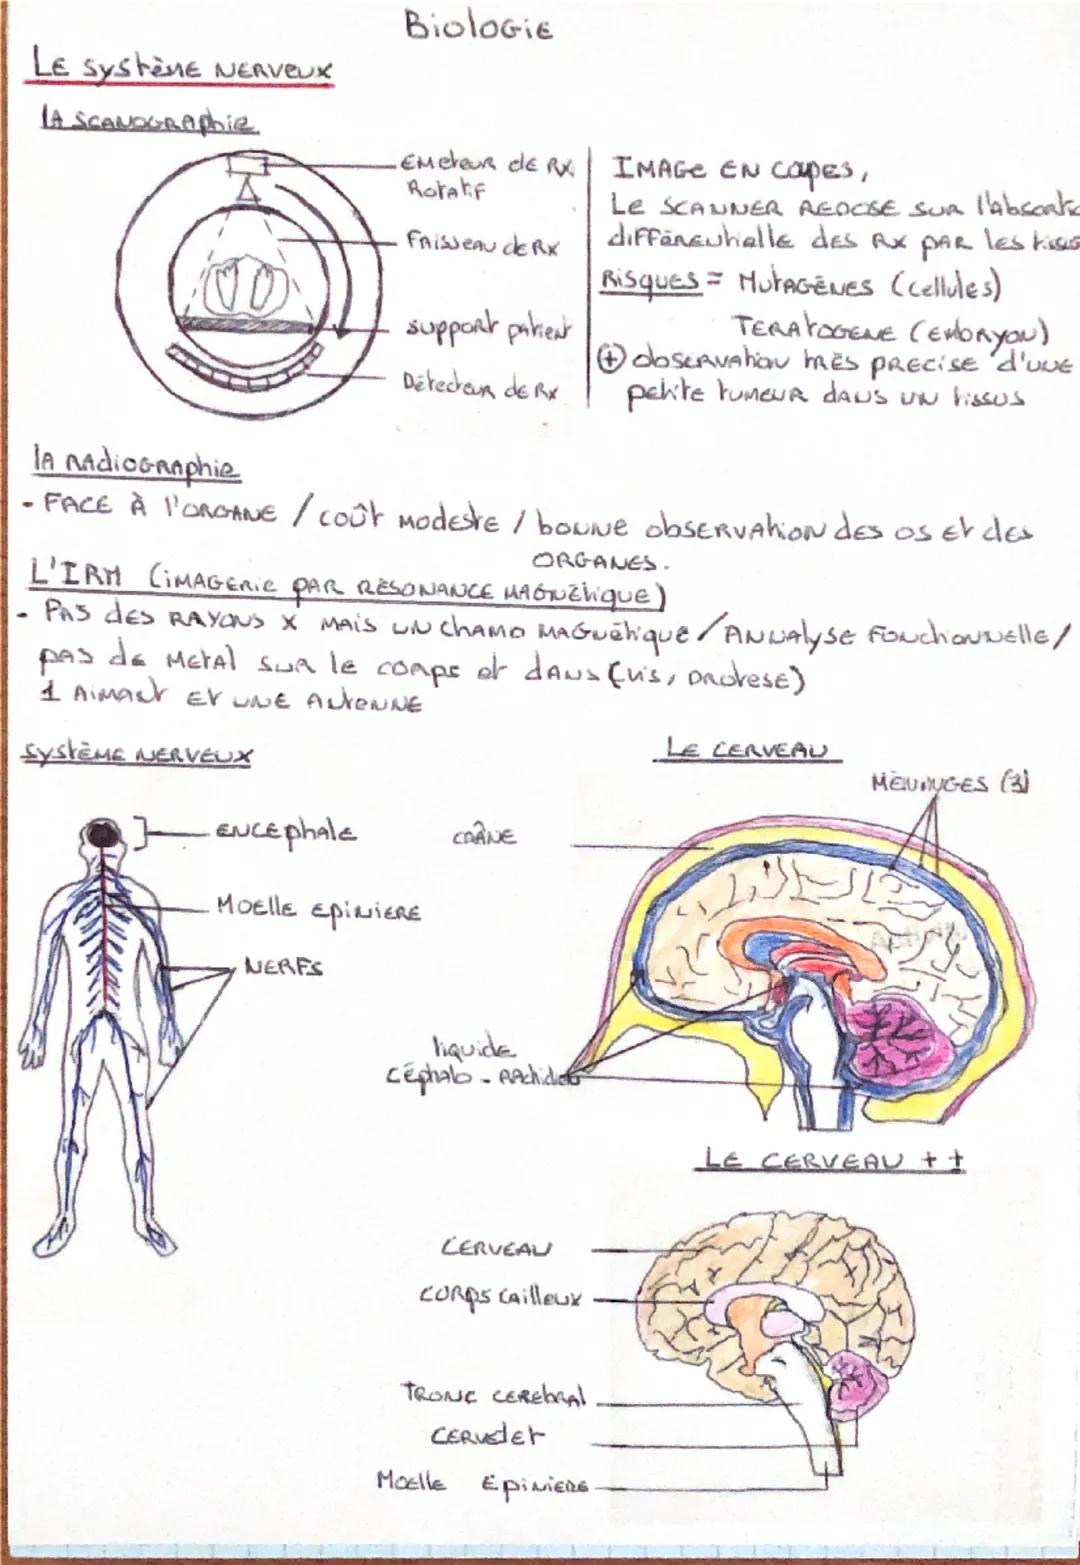 Biologie
Le système nerveux
la scanographie
Emeteur de Rx
Rotatif
Faisseau de Rx
support patient
Détecteur de Rx
Image en coupes,
Le scanner repose sur l'absorptio
différentielle des Rx par les tissus
Risques = Mutagènes (cellules)
Teratogene (embryon)
+ observation très précise d'une
petite tumeur dans un tissus
la radiographie
- Face à l'organe / coût modeste / bonne observation des os et des
organes.
L'IRM (imagerie par résonance magnétique)
- Pas des rayons x mais un champ magnétique / Annalyse fonctionnelle /
pas de metal sur le corps et dans (vis, protese)
1 aimant et une antenne
système nerveux
encephale
Moelle epiniere
nerfs
Le cerveau
Méninges (3)
crâne
liquide
céphalo-rachidien
Le cerveau ++
cerveau
corps cailleux
tronc cerebral
cervelet
Moelle Epiniere